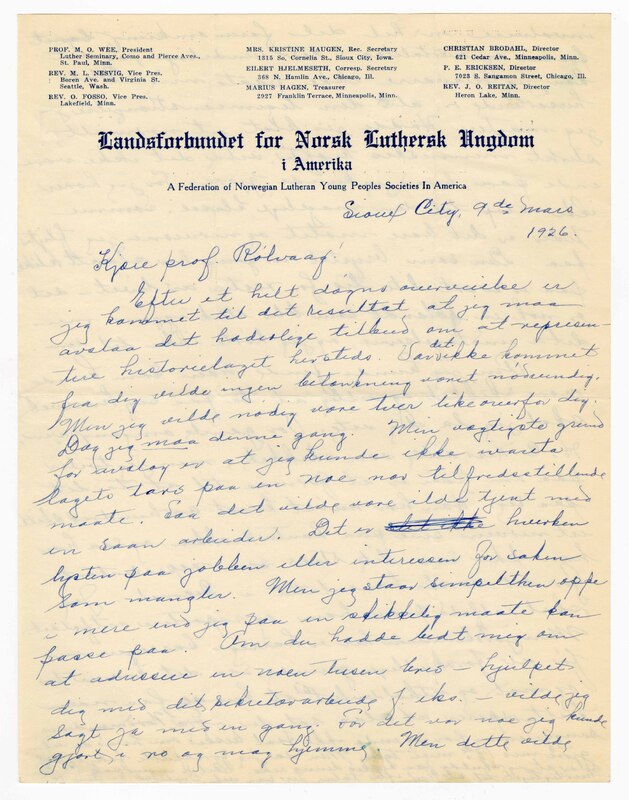 PROF. M. O. WEE, President
Luther Seminary, Como and Pierce Aves.,
St. Paul, Minn.
REV. M. L. NESVIG, Vice Pres.
Boren Ave. and Virginia St.
Seattle, Wash.
REV. O. FOSSO, Vice Pres.
Lakefield, Minn.
MRS. KRISTINE HAUGEN, Rec. Secretary
1815 So. Cornelia St., Sioux City, Iowa.
EILERT HJELMESETH, Corresp. Secretary
368 N. Hamlin Ave., Chicago, Ill.
MARIUS HAGEN, Treasurer
2927 Franklin Terrace, Minneapolis, Minn.
CHRISTIAN BRODAHL, Director
621 Cedar Ave., Minneapolis, Minn.
P. E. ERICKSEN, Director
7028 S. Sangamon Street, Chicago, Ill.
REV. J. O. REITAN, Director
Heron Lake, Minn.
Landsforbundet for Norsk Luthersk Ungdom
i Amerika
A Federation of Norwegian Lutheran Young Peoples Societies In America
Sioux City, 9de mars
1926.
Kjære prof. Rölvaag!
Efter et helt døgns overveielse er
jeg kommet til det resultat at jeg maa
avslaa det hæderlige tilbud om at represen-
tere historielaget hersteds. Var det ikke kommet
fra dig vilde ingen betænkning været nødvendig.
Men jeg vilde nødig være tver likeoverfor dig.
Dog jeg maa denne gang. Min vægtigste grund
for avslag er at jeg kunde ikke ivareta
lagets tarv paa en noe nær tilfredsstillende
maate. Saa det vilde være ilde tjent med
en saan arbeider. Det er hverken
lysten paa jobben eller interessen for saken
som mangler. Men jeg staar simpelthen oppe
i mere end jeg paa en skikkelig maate kan
passe paa. Om du hadde bedt mig om
at adressere en noen tusen breve – hjulpet
dig med det sekretærarbeide f. eks. – vilde jeg
sagt ja med en gang. For det var noe jeg kunde
gjøre i ro og mag hjemme. Men dette vilde